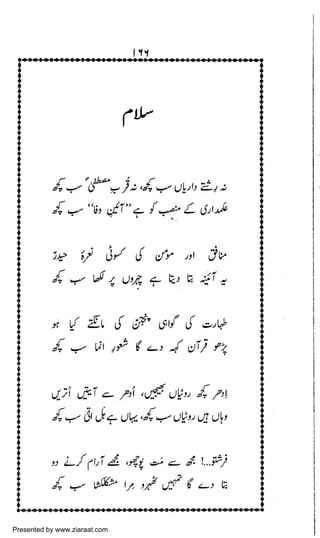 ۱۶۶
سلام
نہ رشتے داریاں سب کچھ، نہ قُربِ مصطفٰیؐ سب کچھ
علمداری کے منصب کو ہے ”آئینِ وفا“ سب کچھ
منافق اور مومن کی کسوٹی نعرۂ حیدرؑ
یہ آئینہ بتا دیتا ہے چہروں پر لکھا سب کچھ
طہارت کی گواہی پنجتنؑ کی مانگتے کیا ہو
پڑھو قرآن کہہ دے گا شعورِ انما سب کچھ
اِدھر کچھ روٹیاں بھیجیں، اُدھر سے آیتیں اُتریں
وہاں ہیں روٹیاں سب کچھ، یہاں ہے ہل اتٰی سب کچھ
فرشتو...! مجھ سے مَت پوچھو، مجھے آرام کرنے دو
بتا دے گا تمہیں ٹھہرو مِرا مشکلکشا سب کچھ
Presented by www.ziaraat.com